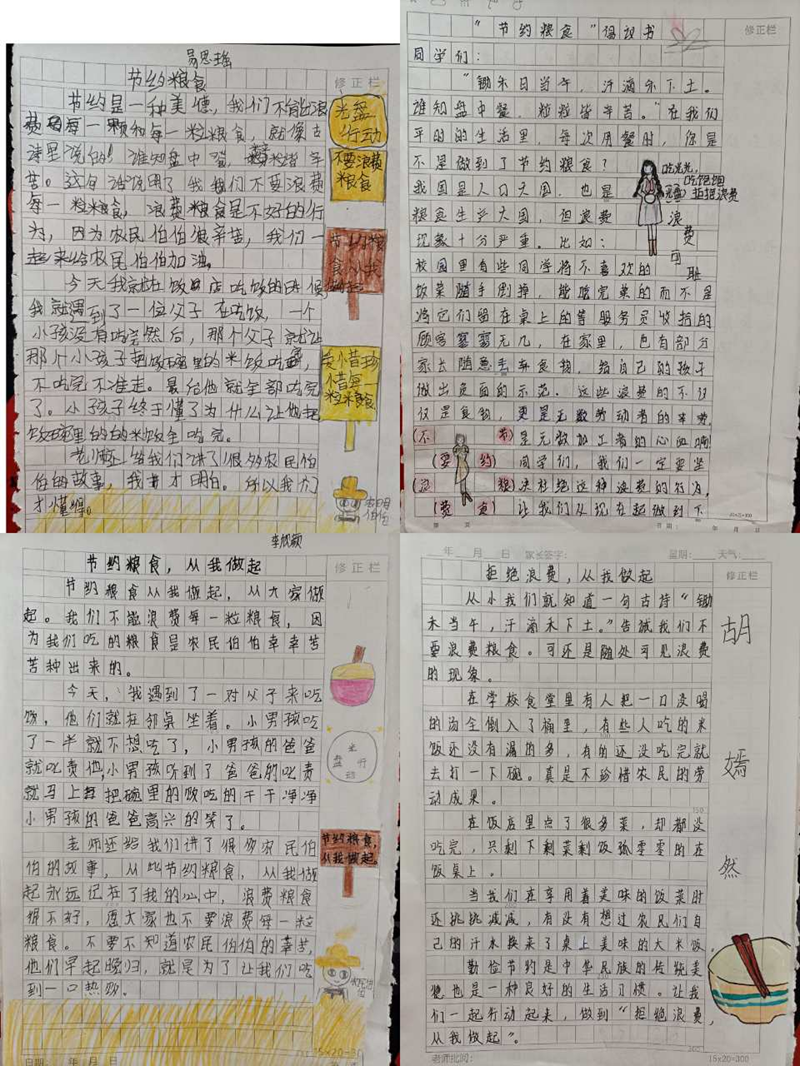 易思瑶
节约粮食
修正栏
节约是一种美德，我们不能浪
费每一颗和每一粒粮食，就像古
诗里说的！谁知盘中餐，粒粒皆辛
苦。这句话说明了我们不要浪费
每一粒粮食，浪费粮食是不好的行
为，因为农民伯伯很辛苦，我们一
起来给农民伯伯加油。
今天我就在饭店吃饭的时候
我就遇到了一位父子在吃饭，一个
小孩没有吃完然后，那个父子就让
那个小孩子把饭碗里的米饭吃完，
不吃完不准走。最给他就全部吃完
了。小孩子终于懂了为什么让他把
饭碗里的的米饭全吃完。
老师还给我们讲了很多农民伯
伯的故事，我才明白。所以我们
才懂得。
光盘
行动
不要浪费
粮食
节约粮
食从我
做起
爱惜珍
惜每一
粒粮食
农民
伯伯
“节约粮食”倡议书
修正栏
同学们：
“锄禾日当午，汗滴禾下土。
谁知盘中餐，粒粒皆辛苦。”在我们
平时的生活里，每次用餐时，你是
不是做到了节约粮食？
我国是人口大国，也是
粮食生产大国，但浪费
现象十分严重。比如：
校园里有些同学将不喜欢的
饭菜随手倒掉，能喝完美的而不是
将它们留在桌上的等服务员收拾的
顾客寥寥无几，在家里，也有部分
家长随意丢弃食物，给自己的孩子
做出负面的示范。这些浪费的不仅
仅是食物，更是无数劳动者的辛劳，
是无数加工者的心血啊
同学们，我们一定要坚
决杜绝这种浪费的行为，
让我们从现在起做到下
吃光光，
吃饱饱
拒绝浪费
浪
费
可
耻
(不 节)
(要 约)
(浪 粮)
(费 食)
年 月 日
李欣颖
节约粮食，从我做起
修正栏
节约粮食从我做起，从大家做
起。我们不能浪费每一粒粮食，因
为我们吃的粮食是农民伯伯辛辛苦
苦种出来的。
今天，我遇到了一对父子来吃
饭，他们就在邻桌坐着。小男孩吃
了一半就不想吃了，小男孩的爸爸
就叱责他，小男孩听到了爸爸的叱责
就马上把碗里的饭吃的干干净净
小男孩的爸爸高兴的笑了。
老师还给我们讲了很多农民伯
伯的故事，从此节约粮食，从我做
起永远记在了我的心中，浪费粮食
很不好，愿大家也不要浪费每一粒
粮食。不要不知道农民伯伯的辛苦，
他们早起晚归，就是为了让我们吃
到一口热饭。
光
盘 行
动
节约粮食，
从我做起
农民伯
伯
15×20=300
日期： 年 月 日
年 月 日 家长签字： 星期： 天气：
拒绝浪费，从我做起
修正栏
从小我们就知道一句古诗“锄
禾当午，汗滴禾下土。”告诫我们不
要浪费粮食。可还是随处可见浪费
的现象。
在学校食堂里有人把一口没喝
的汤全倒入了桶里，有些人吃的米
饭还没有漏的多，有的还没吃完就
去打一下碗。真是不珍惜农民的劳
动成果。
在饭店里点了很多菜，却都没
吃完，只剩下剩菜剩饭孤零零的在
饭桌上。
当我们在享用着美味的饭菜时
还挑挑减减，有没有想过农民们自
己的汗水换来了桌上美味的大米饭，
勤俭节约是中华民族的传统美
德也是一种良好的生活习惯。让我
们一起行动起来，做到“拒绝浪费，
从我做起”。
胡
嫣
然
老师批阅：
15×20=300